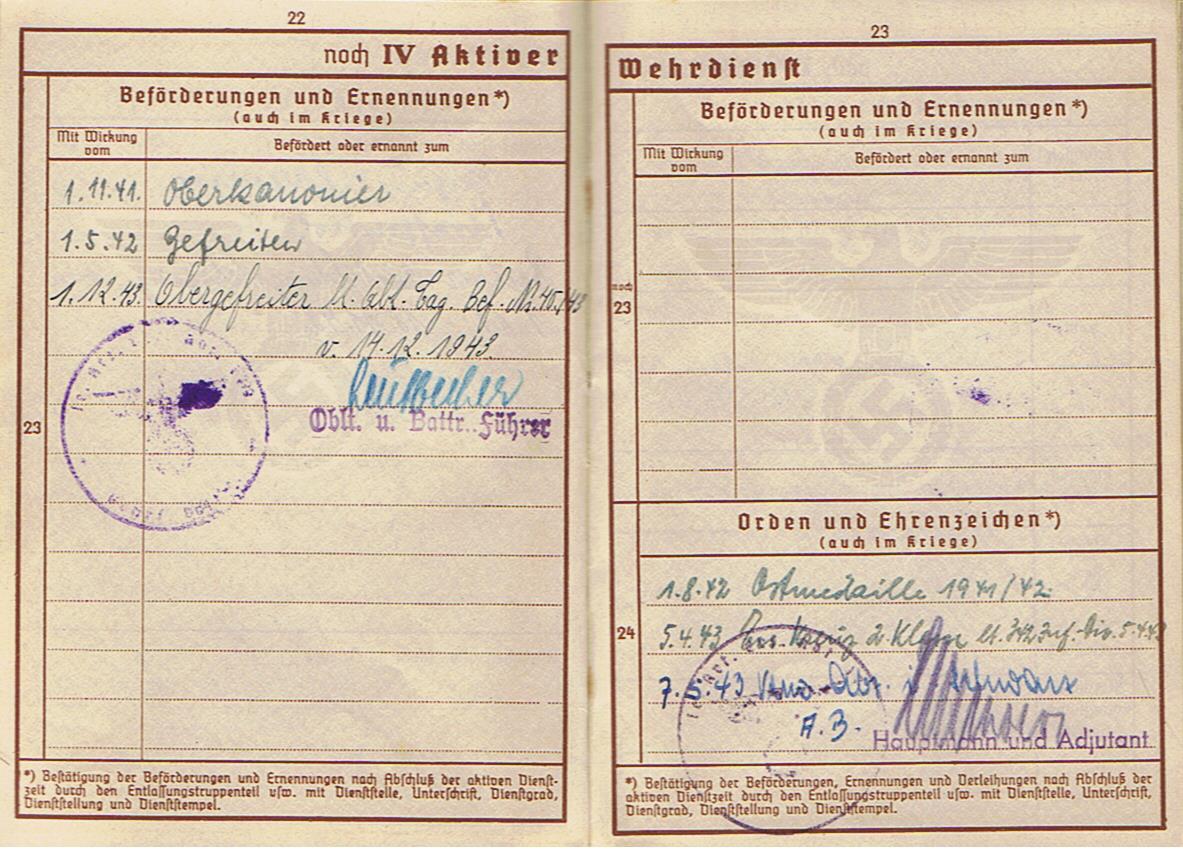 22
noch IV Aktiver
Beförderungen und Ernennungen*)
(auch im Kriege)
Mit Wirkung vom
Befördert oder ernannt zum
1.11.41. Oberkanonier
1.5.42 Gefreiten
1.12.43. Obergefreiter lt. Abt. Tag. Bef. Nr. 40/43
v. 14.12.1943.
Oblt. u. Battr.-Führer
23
*) Bestätigung der Beförderungen und Ernennungen nach Abschluß der aktiven Dienst-
zeit durch den Entlassungstruppenteil usw. mit Dienststelle, Unterschrift, Dienstgrad,
Dienststellung und Dienststempel.
23
Wehrdienst
Beförderungen und Ernennungen*)
(auch im Kriege)
Mit Wirkung vom
Befördert oder ernannt zum
noch
23
Orden und Ehrenzeichen*)
(auch im Kriege)
24
1.8.42 Ostmedaille 1941/42.
5.4.43 Kreuz 2. Klasse lt. 342 Inf.-Div. 5.4.43
A.B.
Hauptmann und Adjutant
*) Bestätigung der Beförderungen, Ernennungen und Verleihungen nach Abschluß der
aktiven Dienstzeit durch den Entlassungstruppenteil usw. mit Dienststelle, Unterschrift,
Dienstgrad, Dienststellung und Dienststempel.